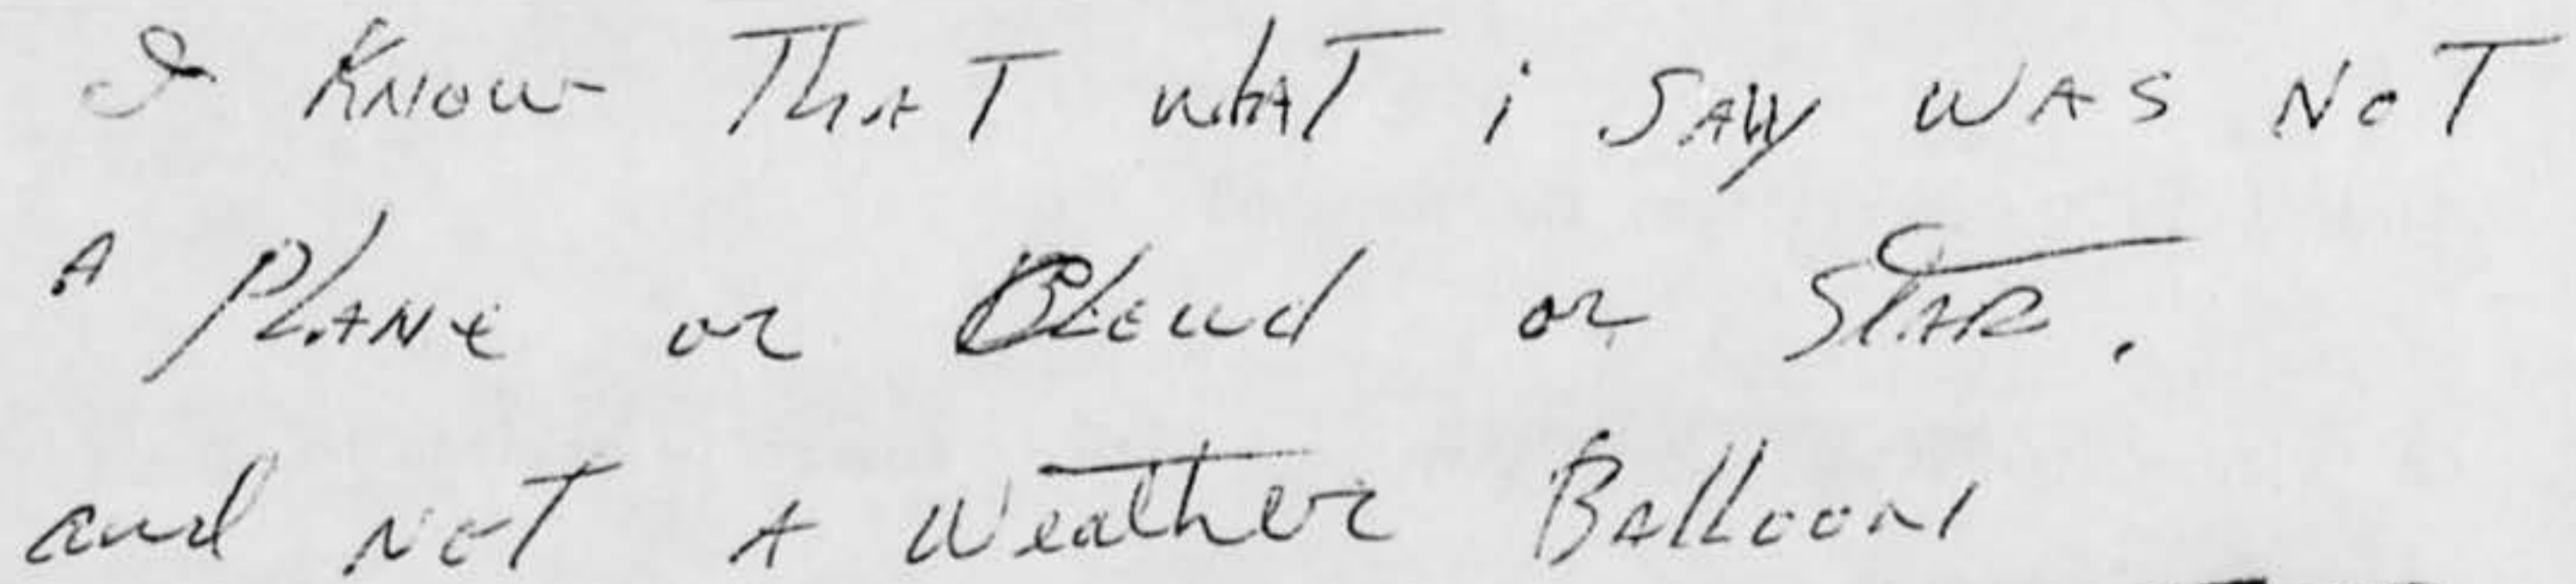 I KNOW That what i SAW WAS NOT
A PLANe or Cloud or STAR.
and NOT A Weather Balloon